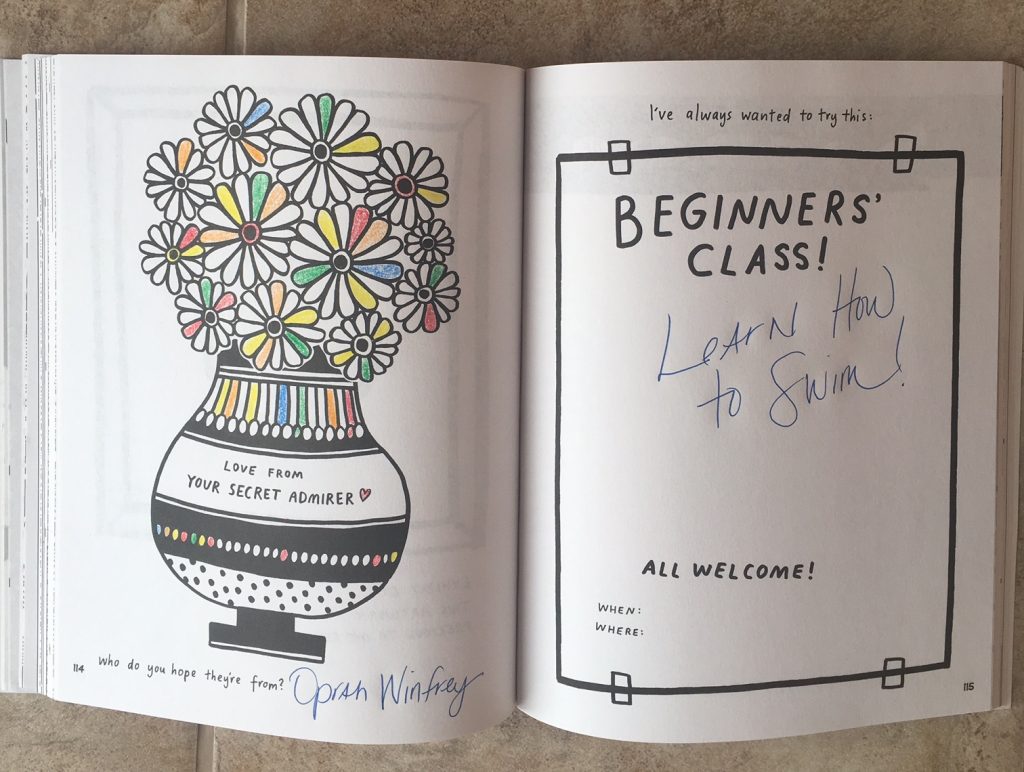 LOVE FROM
YOUR SECRET ADMIRER
114
Who do you hope they're from? Oprah Winfrey
I've always wanted to try this:
BEGINNERS'
CLASS!
Learn How
to Swim!
ALL WELCOME!
WHEN:
WHERE:
115